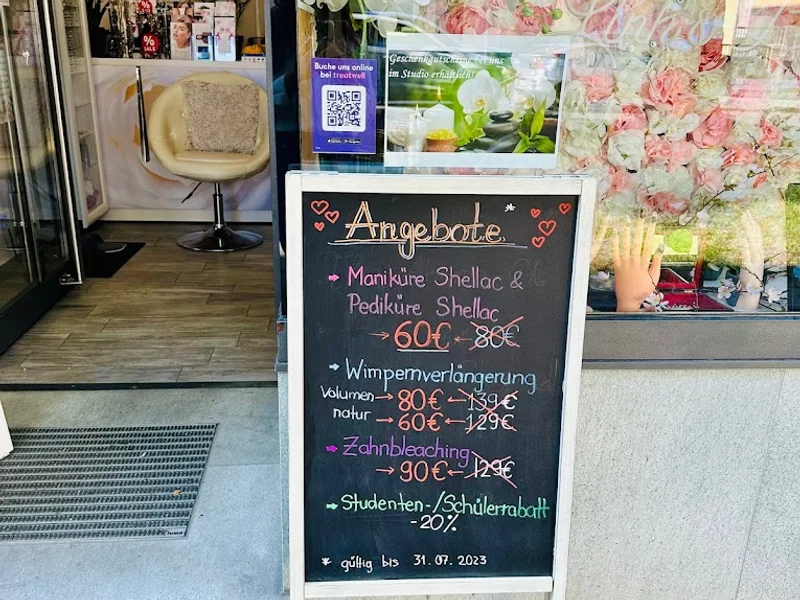 %
SALE
Buche uns online
bei treatwell
Geschenkgutscheine bei uns
im Studio erhältlich!
Angebote *
➡ Maniküre Shellac &
Pediküre Shellac
→ 60€ ← 80€
➡ Wimpernverlängerung
Volumen → 80€ ← 139€
natur → 60€ ← 129€
➡ Zahnbleaching
→ 90€ ← 129€
➡ Studenten-/Schülerrabatt
-20%
* gültig bis 31.07.2023